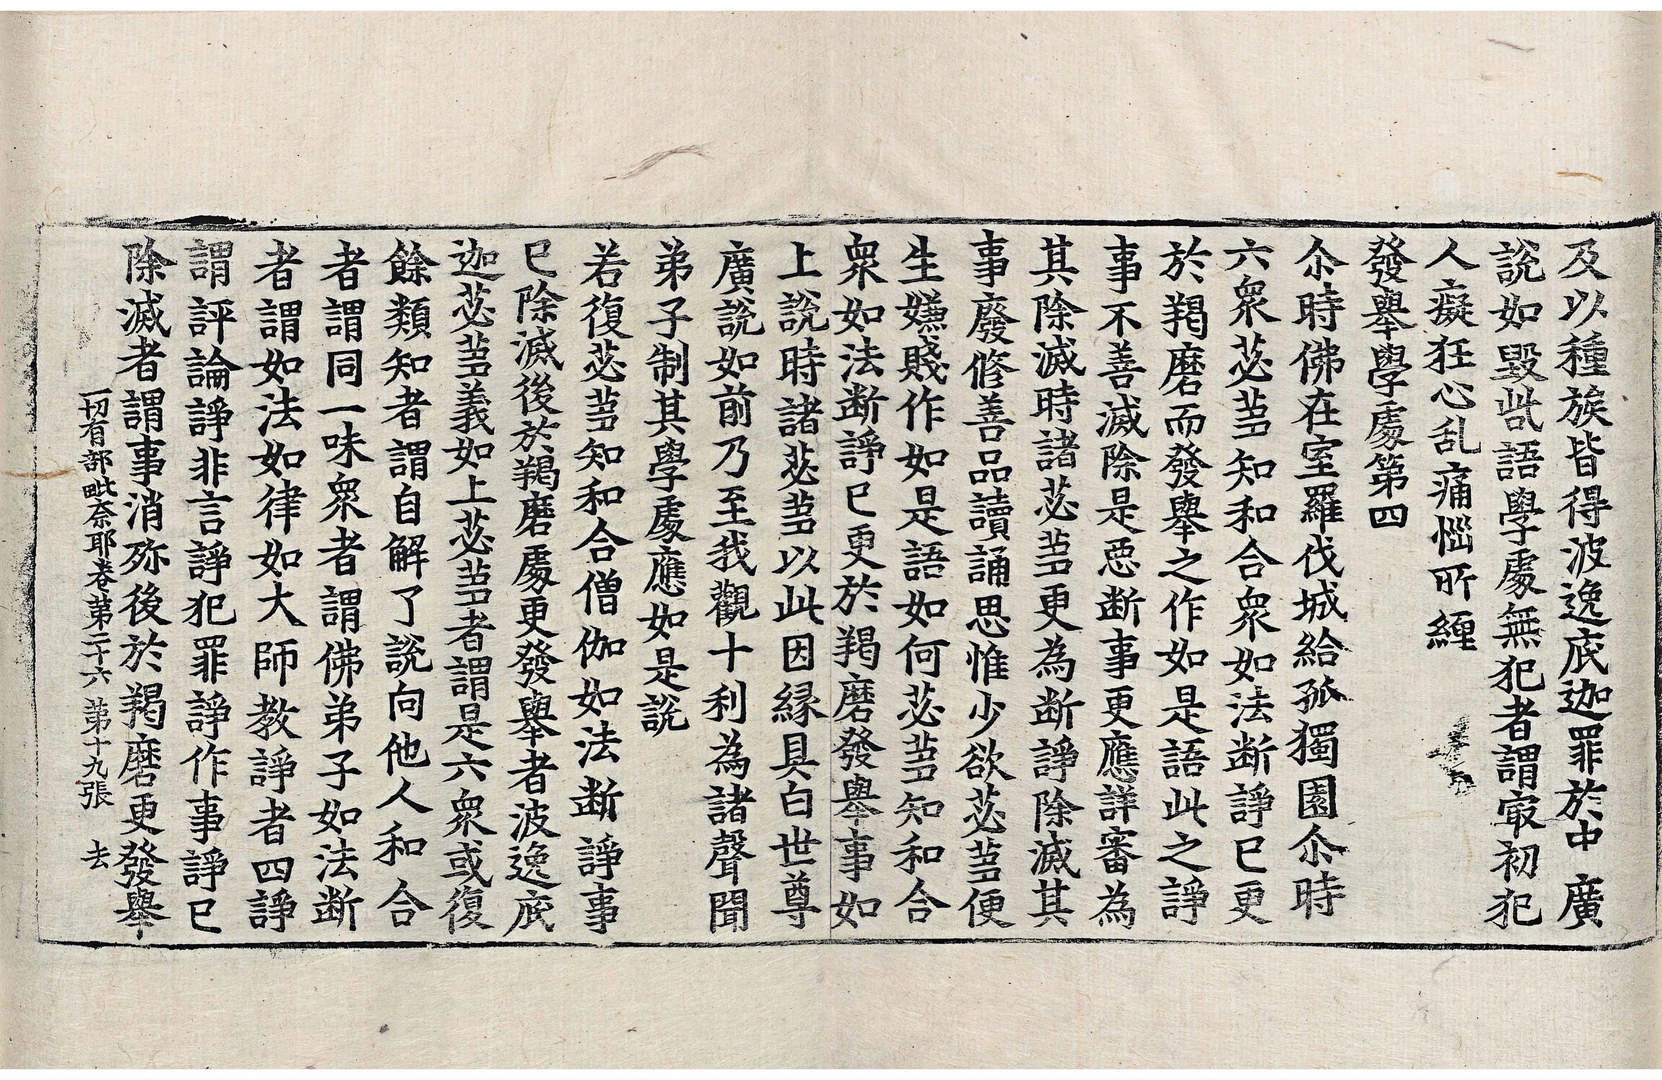 及以種族皆得波逸底迦罪於中廣
說如毀呰語學處無犯者謂㝡初犯
人癡狂心乱痛惱所纏
發舉學處第四
尒時佛在室羅伐城給孤獨園尒時
六衆苾芻知和合衆如法断諍已更
於羯磨而發舉之作如是語此之諍
事不善滅除是惡断事更應詳審為
其除滅時諸苾芻更為断諍除滅其
事廢修善品讀誦思惟少欲苾芻便
生嫌賤作如是語如何苾芻知和合
衆如法断諍已更於羯磨發舉事如
上說時諸苾芻以此因縁具白世尊
廣說如前乃至我觀十利為諸聲聞
弟子制其學處應如是說
若復苾芻知和合僧伽如法断諍事
已除滅後於羯磨處更發舉者波逸底
迦苾芻義如上苾芻者謂是六衆或復
餘類知者謂自解了說向他人和合
者謂同一味衆者謂佛弟子如法断
者謂如法如律如大師教諍者四諍
謂評論諍非言諍犯罪諍作事諍已
除滅者謂事消殄後於羯磨更發舉
一切有部毗奈耶卷第二十六 第十九張 去